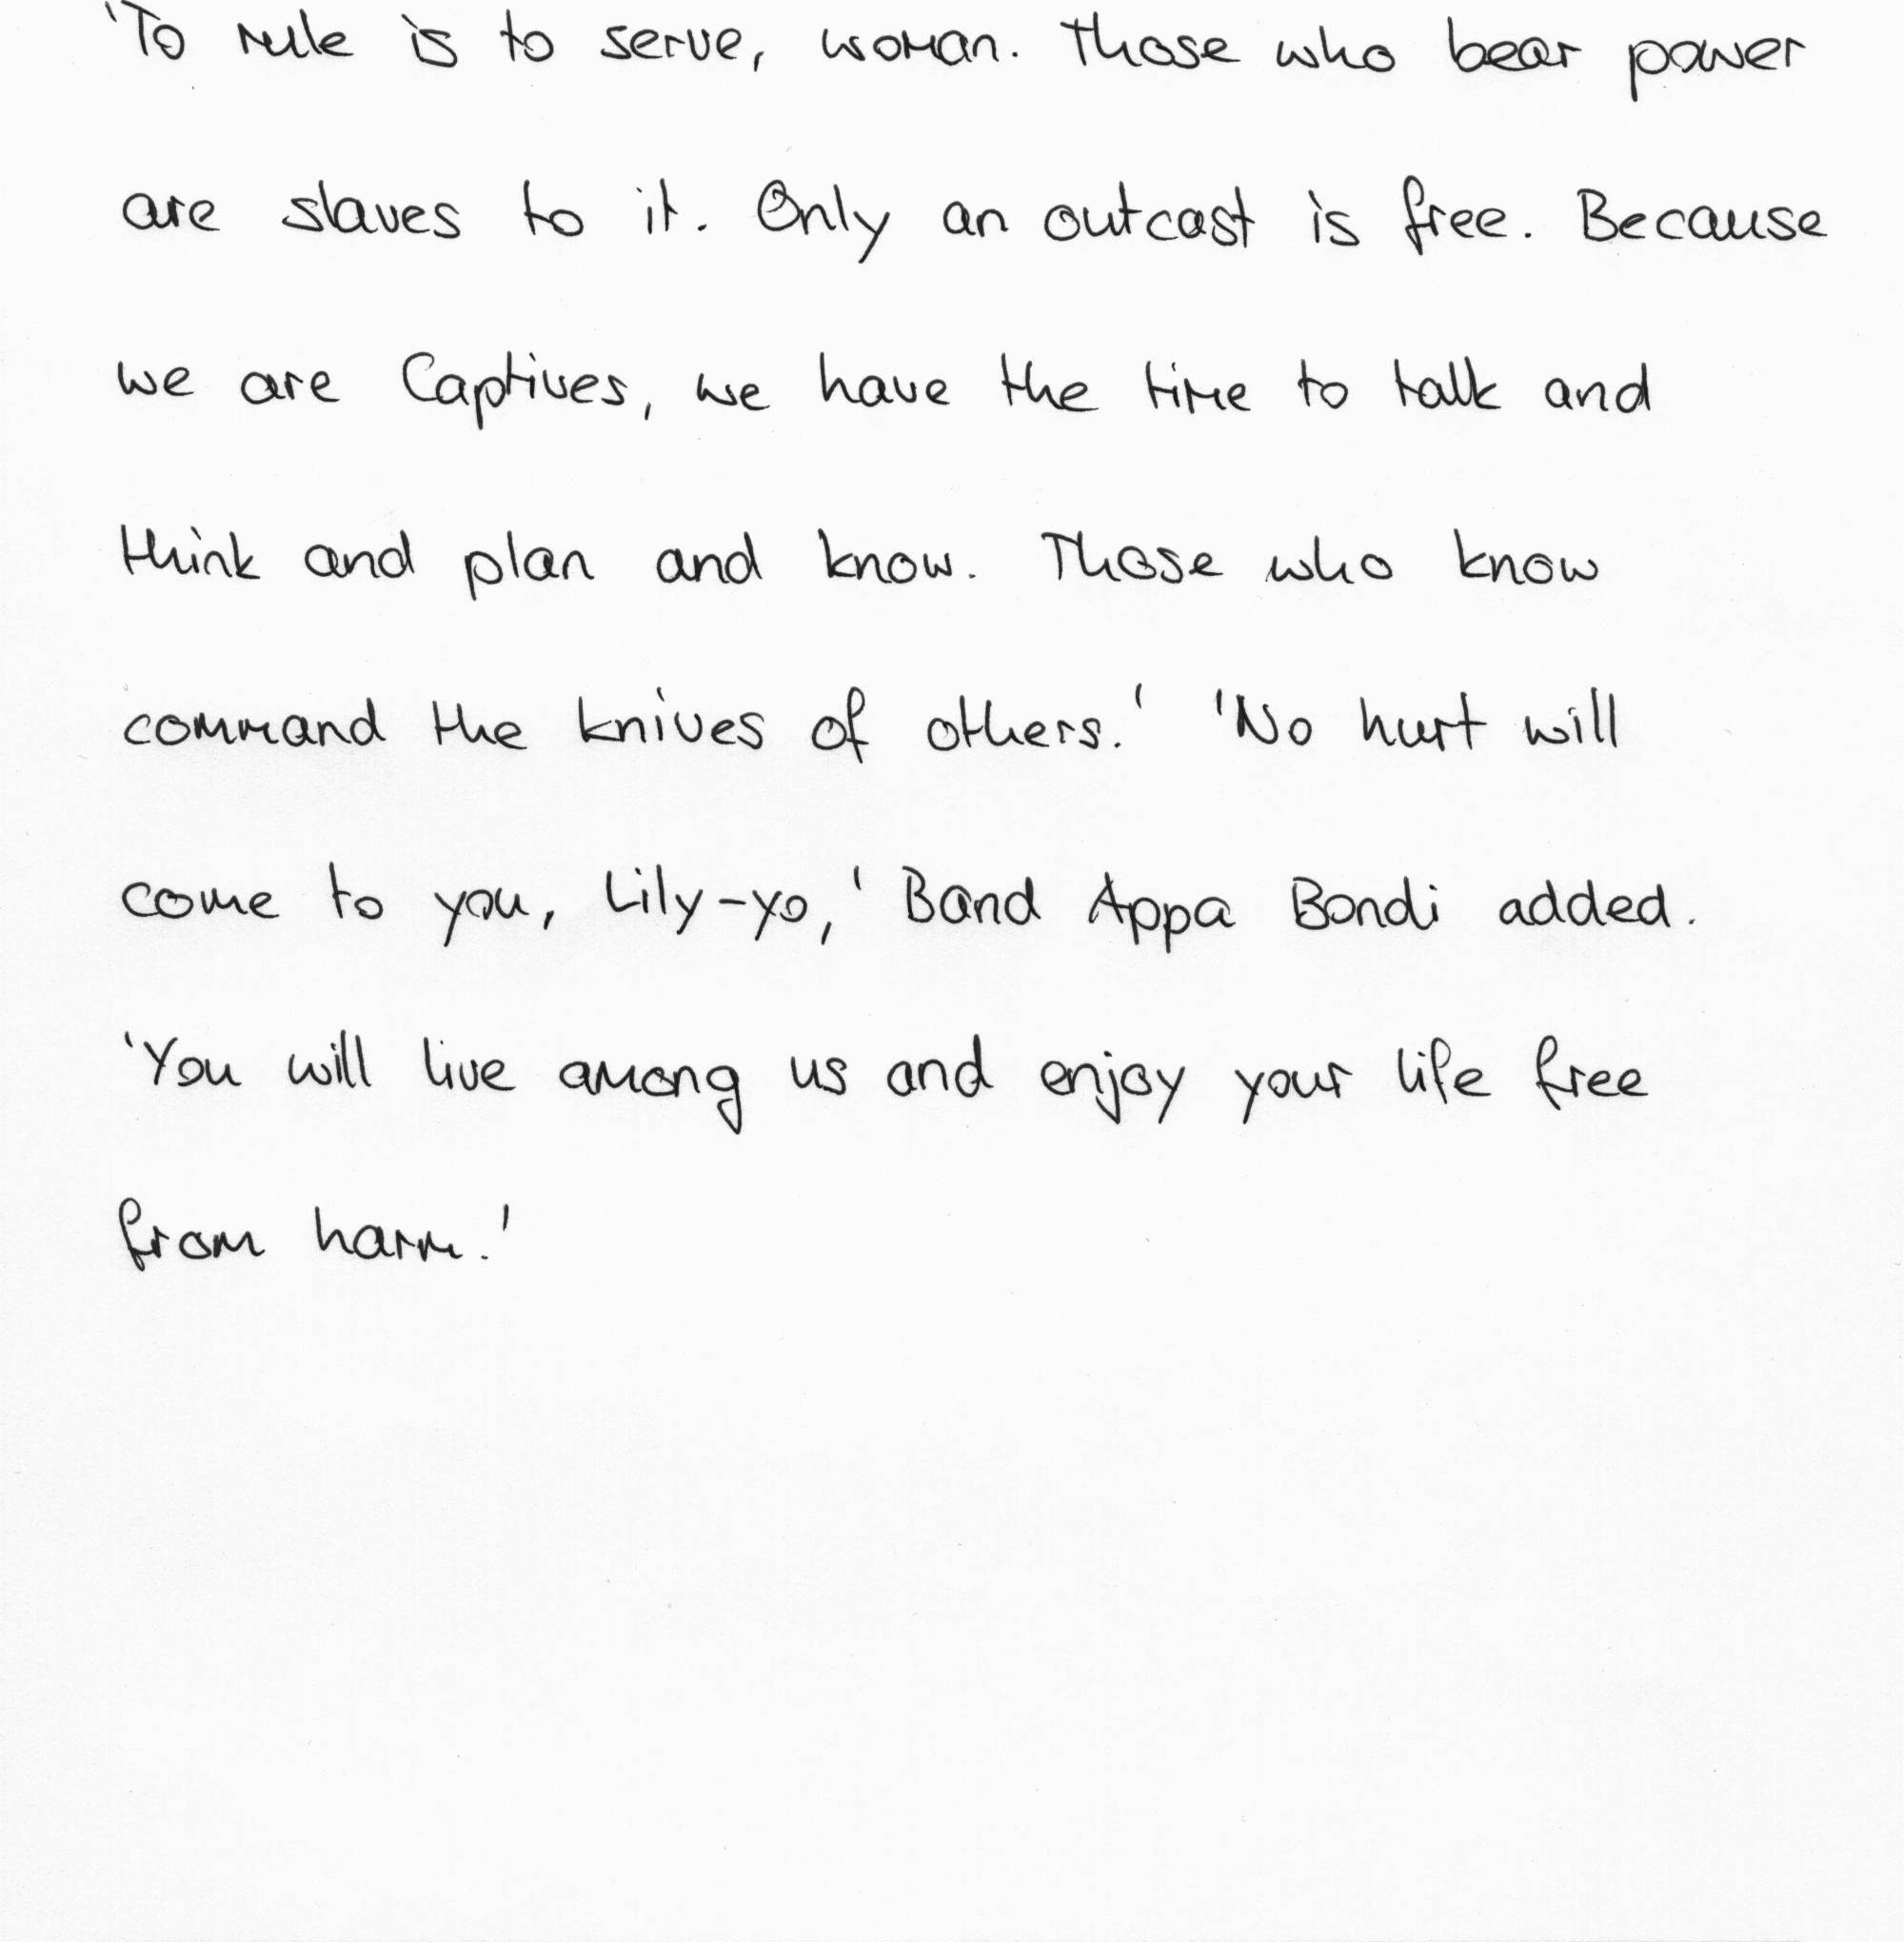 'To rule is to serve, woman. Those who bear power
are slaves to it. Only an outcast is free. Because
we are Captives, we have the time to talk and
think and plan and know. Those who know
command the knives of others.' 'No hurt will
come to you, Lily-yo,' Band Appa Bondi added.
'You will live among us and enjoy your life free
from harm.'